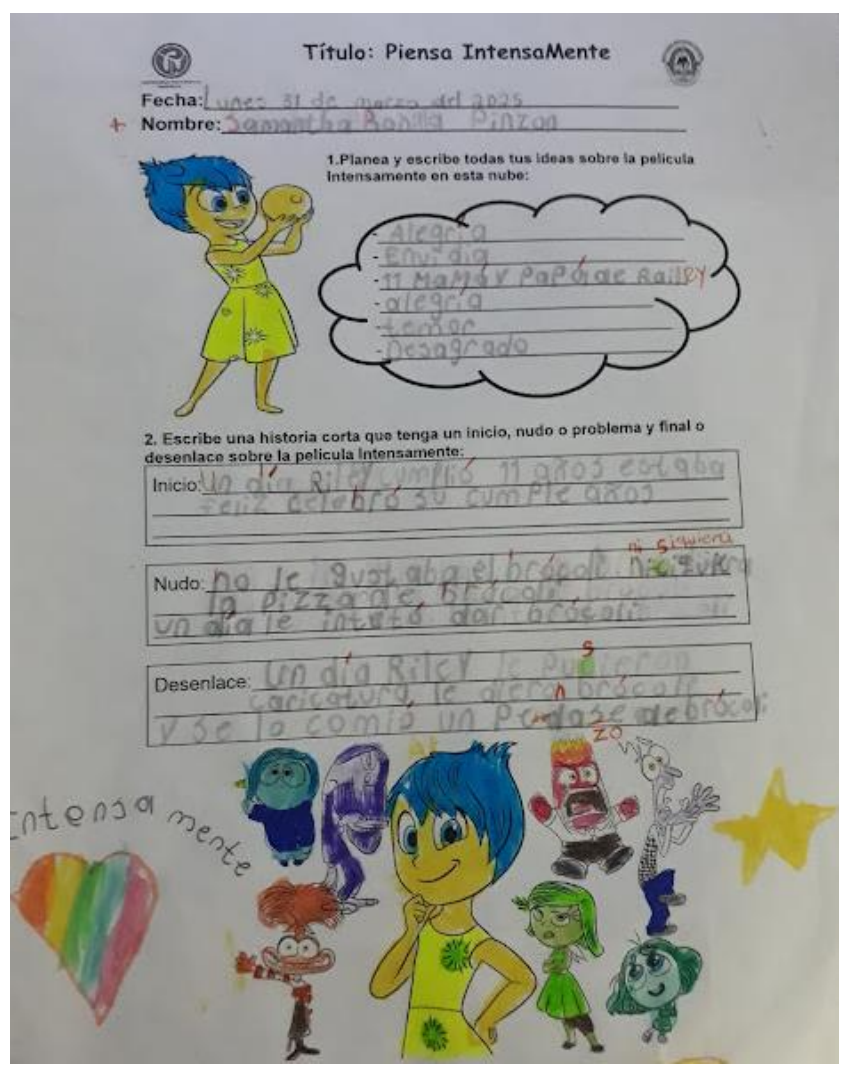 Título: Piensa IntensaMente
Fecha: Lunes 31 de marzo del 2025
+ Nombre: Samantha Bonilla Pinzon
1.Planea y escribe todas tus ideas sobre la pelicula
Intensamente en esta nube:
- Alegria
- Envidia
- 11 Mamá y Papá de Railey
- alegría
- temor
- Desagrado
2. Escribe una historia corta que tenga un inicio, nudo o problema y final o
desenlace sobre la pelicula Intensamente:
Inicio: Un día Riley cumplió 11 años estaba
feliz celebró su cumple años
ni siquiera
Nudo: no le gustaba el brócoli
la pizza de brócoli
un día le intetó dar brócoli
s
Desenlace: Un día Riley le
caricatura le dieron brócoli
y se lo comió un de brócoli
zo
Intensa mente